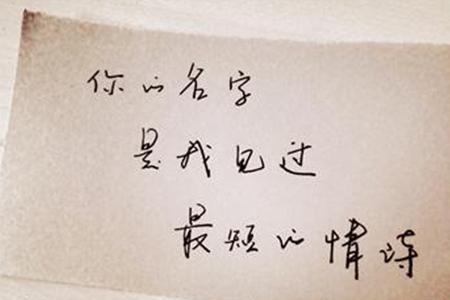 你的名字
是我见过
最短的情诗